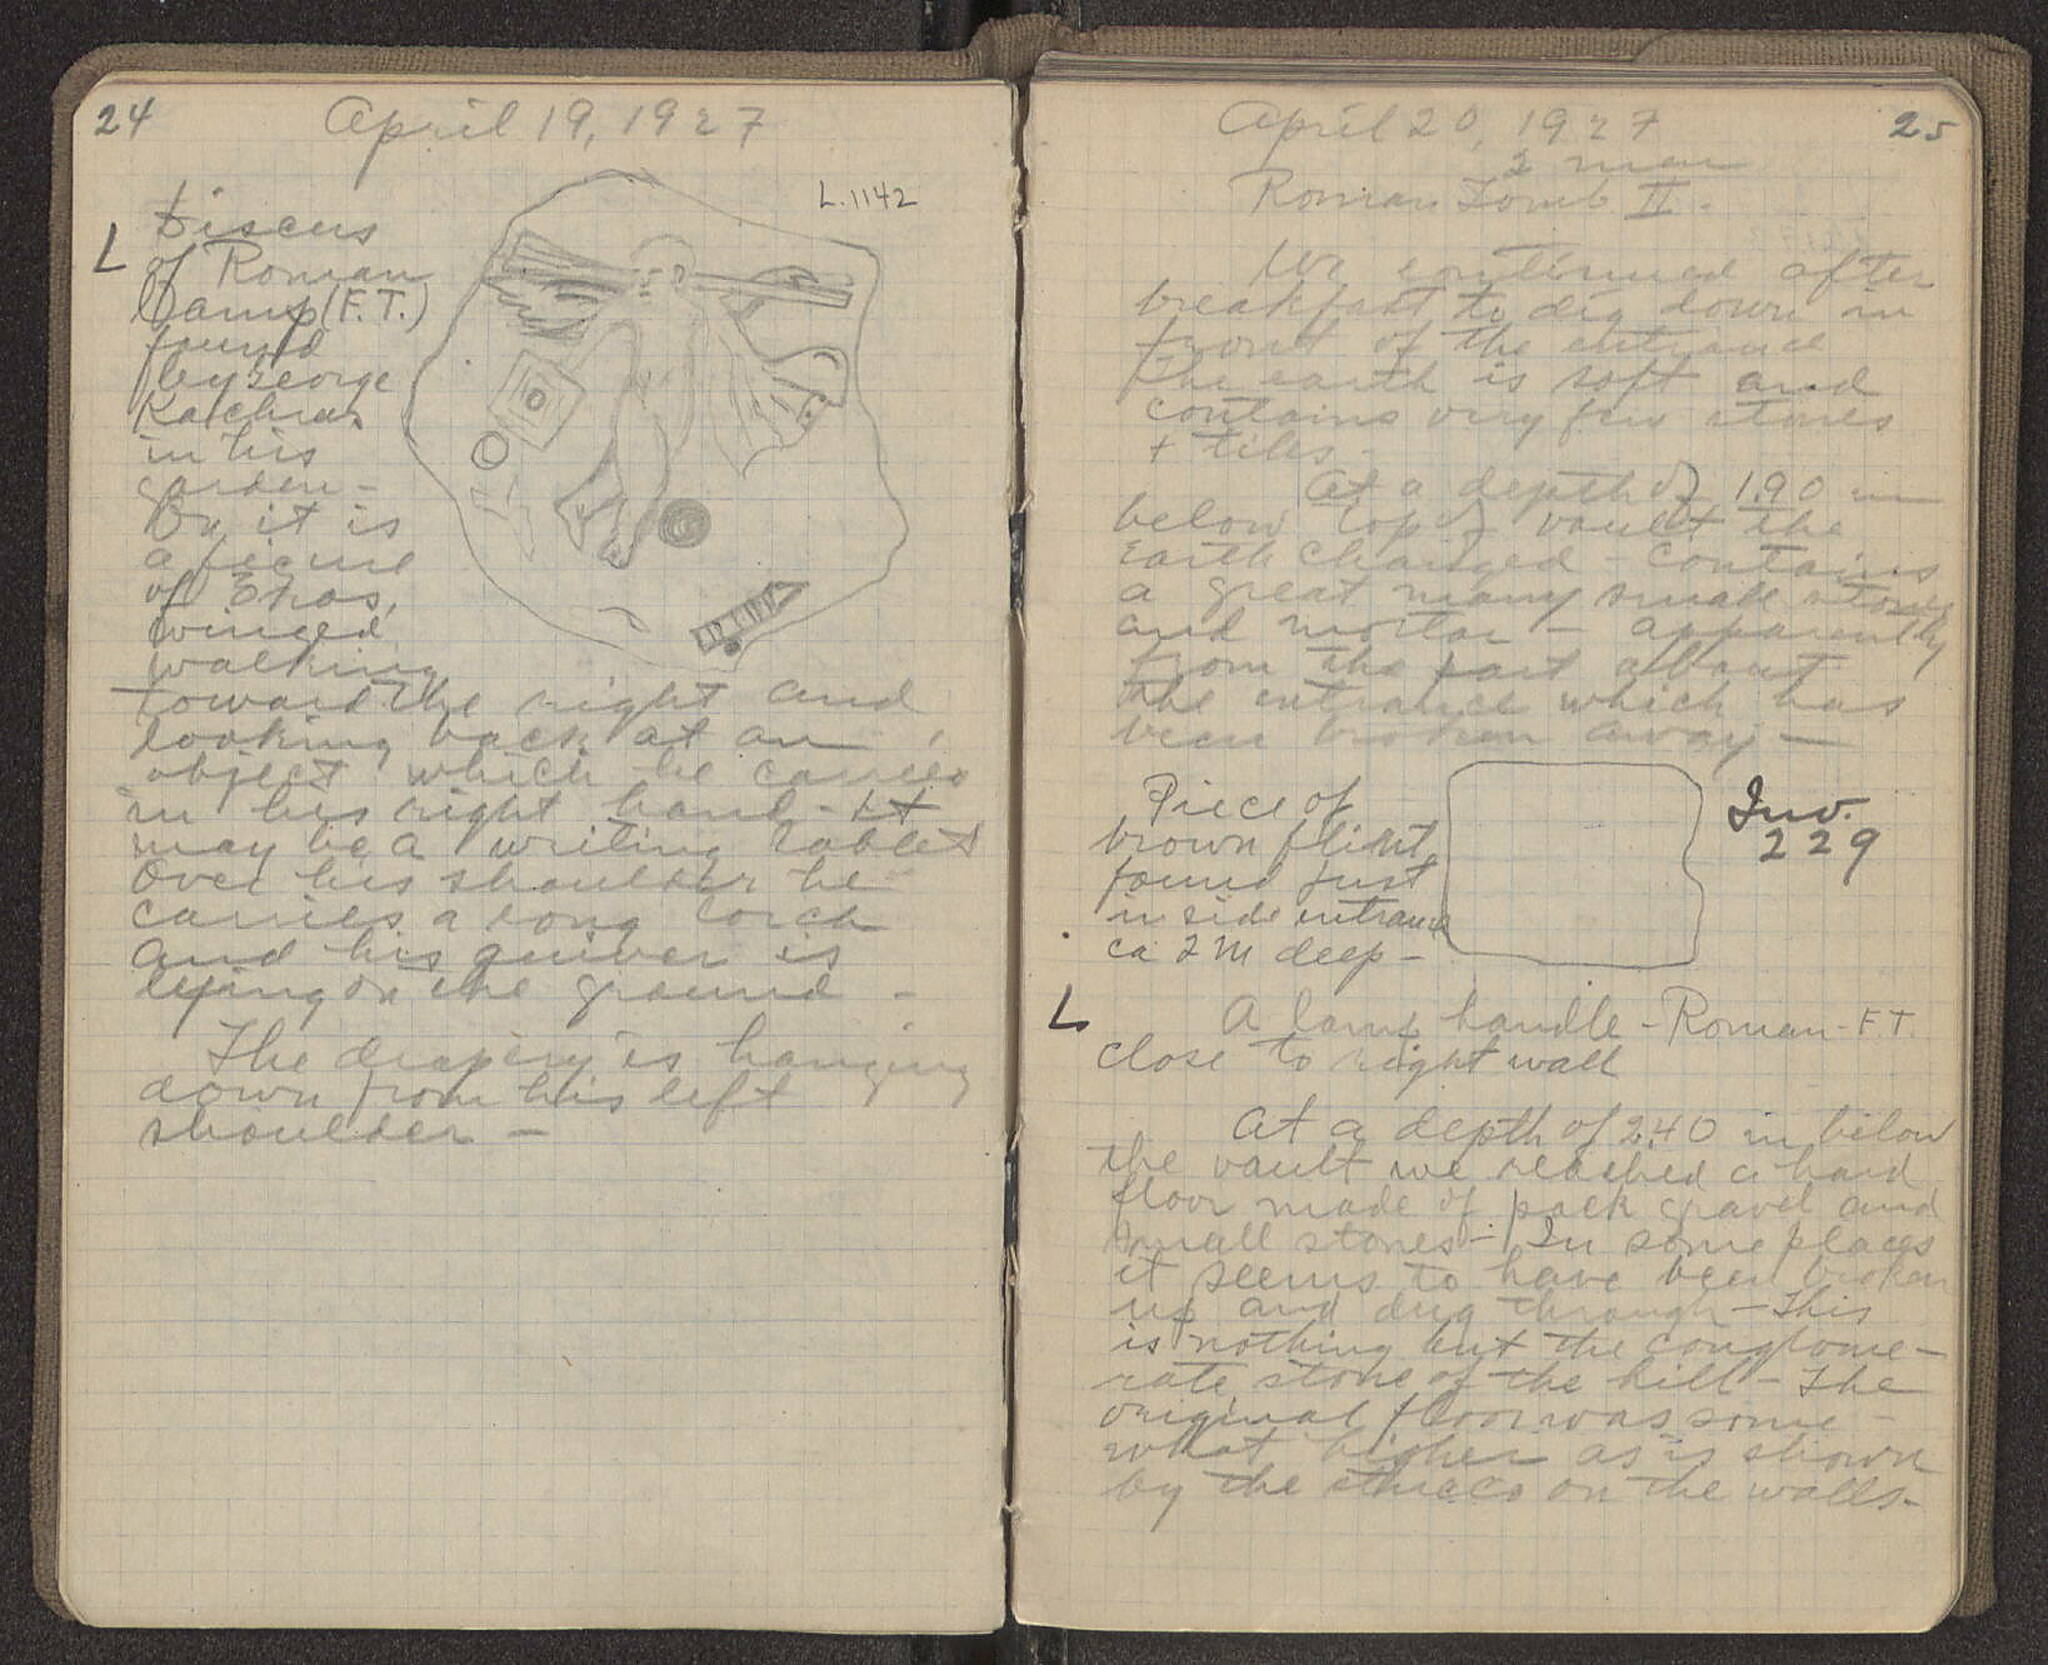 24
April 19, 1927
L. 1142
L
Discus
of Roman
Lamp (F.T.)
found
by George
Kachros
in his
garden -
On it is
a figure
of Eros,
winged
walking
toward the right and
looking back at an
object which he carries
in his right hand - It
may be a writing tablet
Over his shoulder he
carries a long torch
and his quiver is
lying on the ground -
The drapery is hanging
down from his left
shoulder -
25
April 20, 1927
2 men
Roman Tomb II.
We continued after
breakfast to dig down in
front of the entrance
The earth is soft and
contains very few stones
+ tiles -
At a depth of 1.90 m
below top of vault the
earth changed - contains
a great many small stones
and mortar - apparently
from the part about
the entrance which has
been broken away -
Piece of
brown flint,
found just
inside entrance
ca 2 m deep -
Inv.
229
L
A lamp handle - Roman - F.T.
close to right wall
At a depth of 2.40 m below
the vault we reached a hard
floor made of pack gravel and
small stones - In some places
it seems to have been broken
up and dug through - This
is nothing but the conglome-
rate stone of the hill - The
original floor was some-
what higher as is shown
by the stucco on the walls -